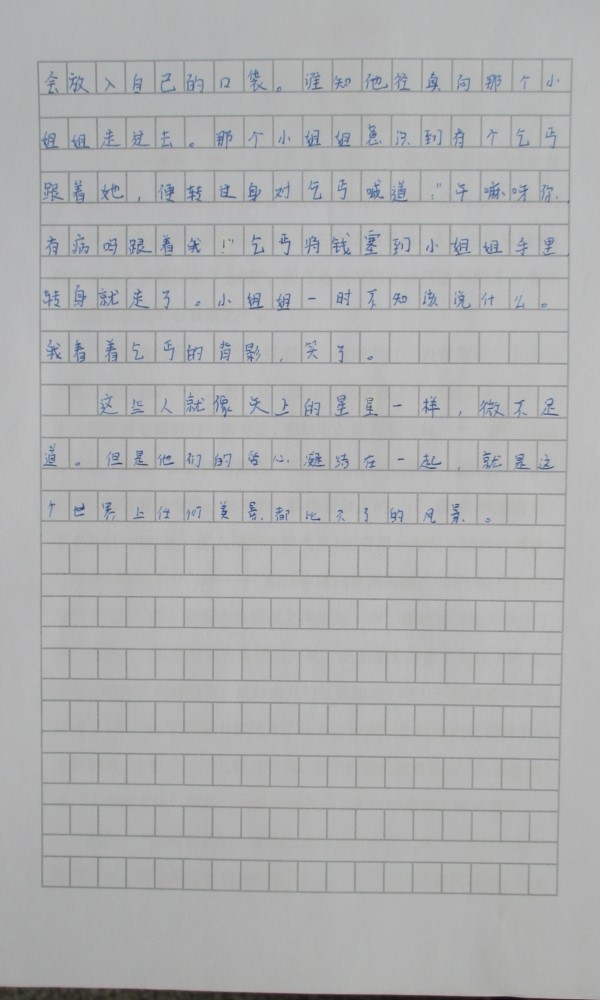 会放入自己的口袋。谁知他径直向那个小
姐姐走过去。那个小姐姐意识到有个乞丐
跟着她，便转过身对乞丐喊道："干嘛呀你，
有病吗跟着我！"乞丐将钱塞到小姐姐手里
转身就走了。小姐姐一时不知该说什么。
我看着乞丐的背影，笑了。
这些人就像天上的星星一样，微不足
道。但是他们的善心凝结在一起，就是这
个世界上任何美景都比不了的风景。